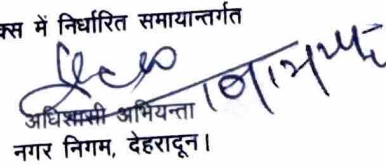 क्स में निर्धारित समायान्तर्गत
अधिशासी अभियन्ता
नगर निगम, देहरादून।